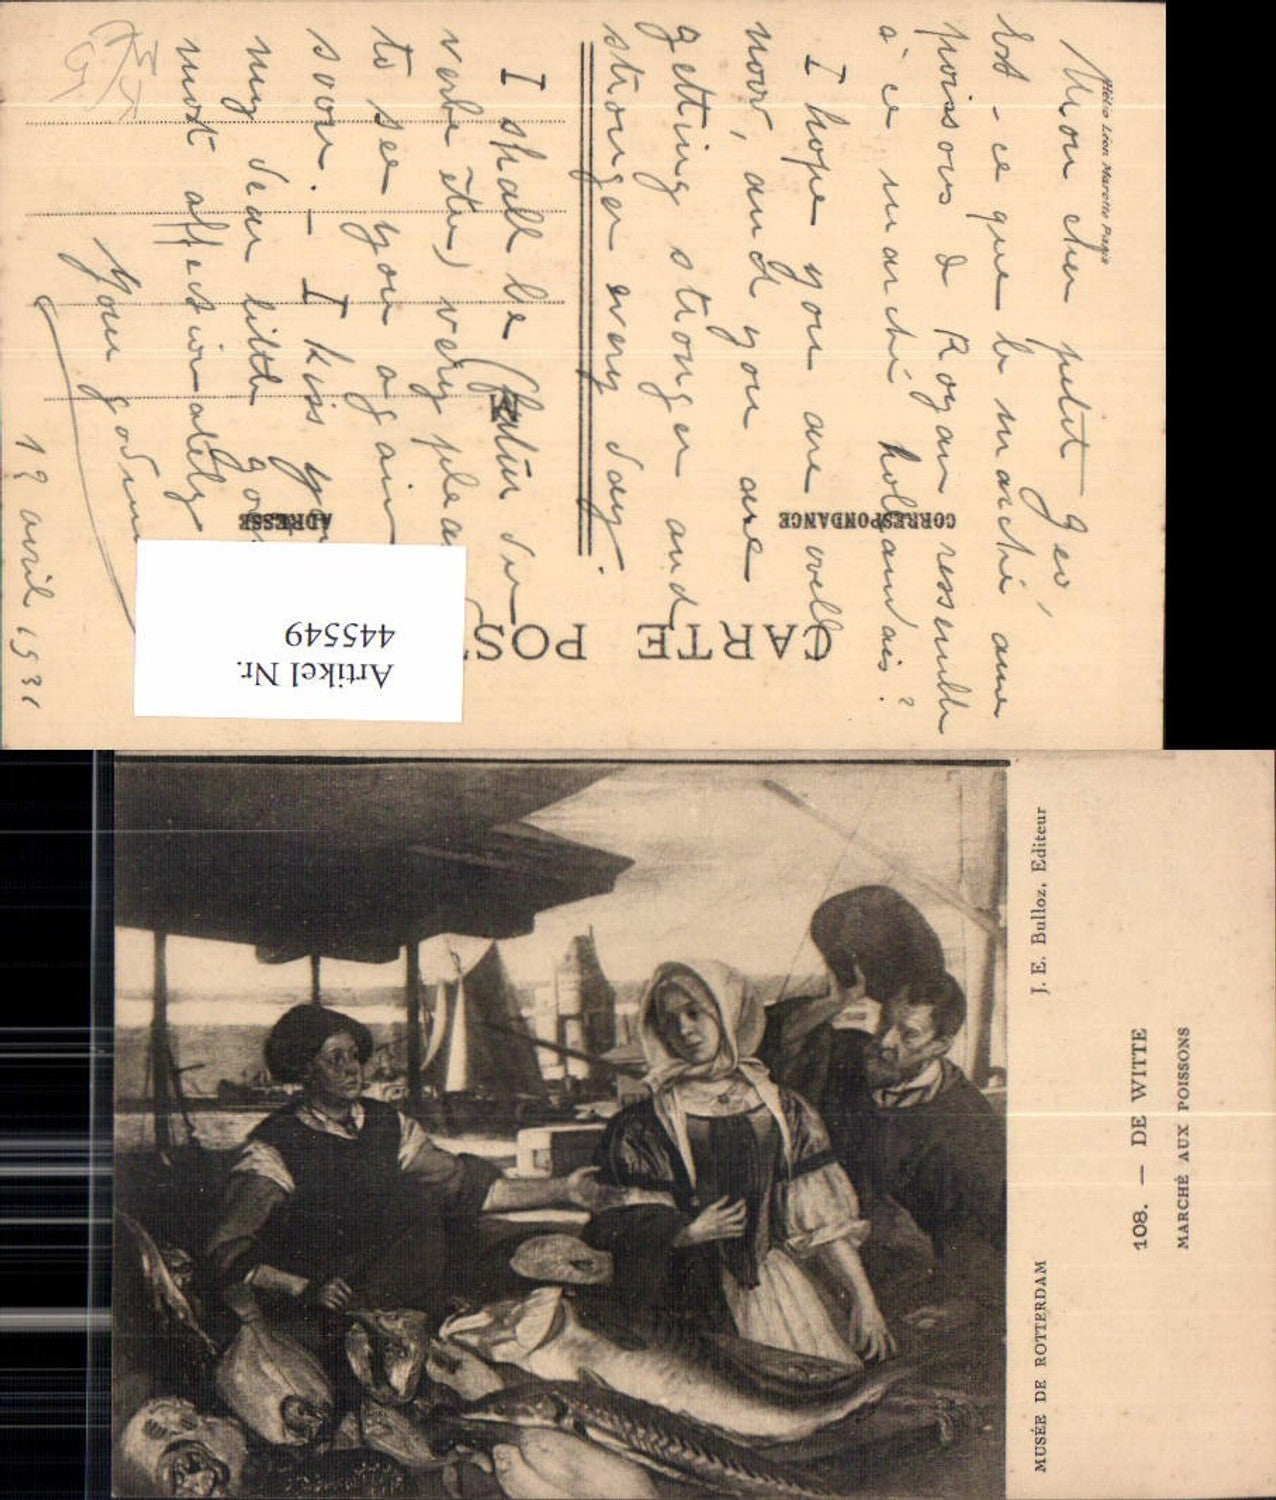 Hélio Léon Marotte Paris
CARTE POS
CORRESPONDANCE
ADRESSE
Mon cher petit Geo,
Est-ce que le marché aux
poissons de Royan ressemble
à ce marché hollandais ?
I hope you are well
now, and you are
getting stronger and
stronger every day.
I shall be (futur du
verbe être) very plea
to see you again
soon. — I kiss
my dear little
most affectionately
Your
19 avril 1931
Artikel Nr.
445549
MUSÉE DE ROTTERDAM
J. E. Bulloz, Editeur
108. — DE WITTE
MARCHÉ AUX POISSONS